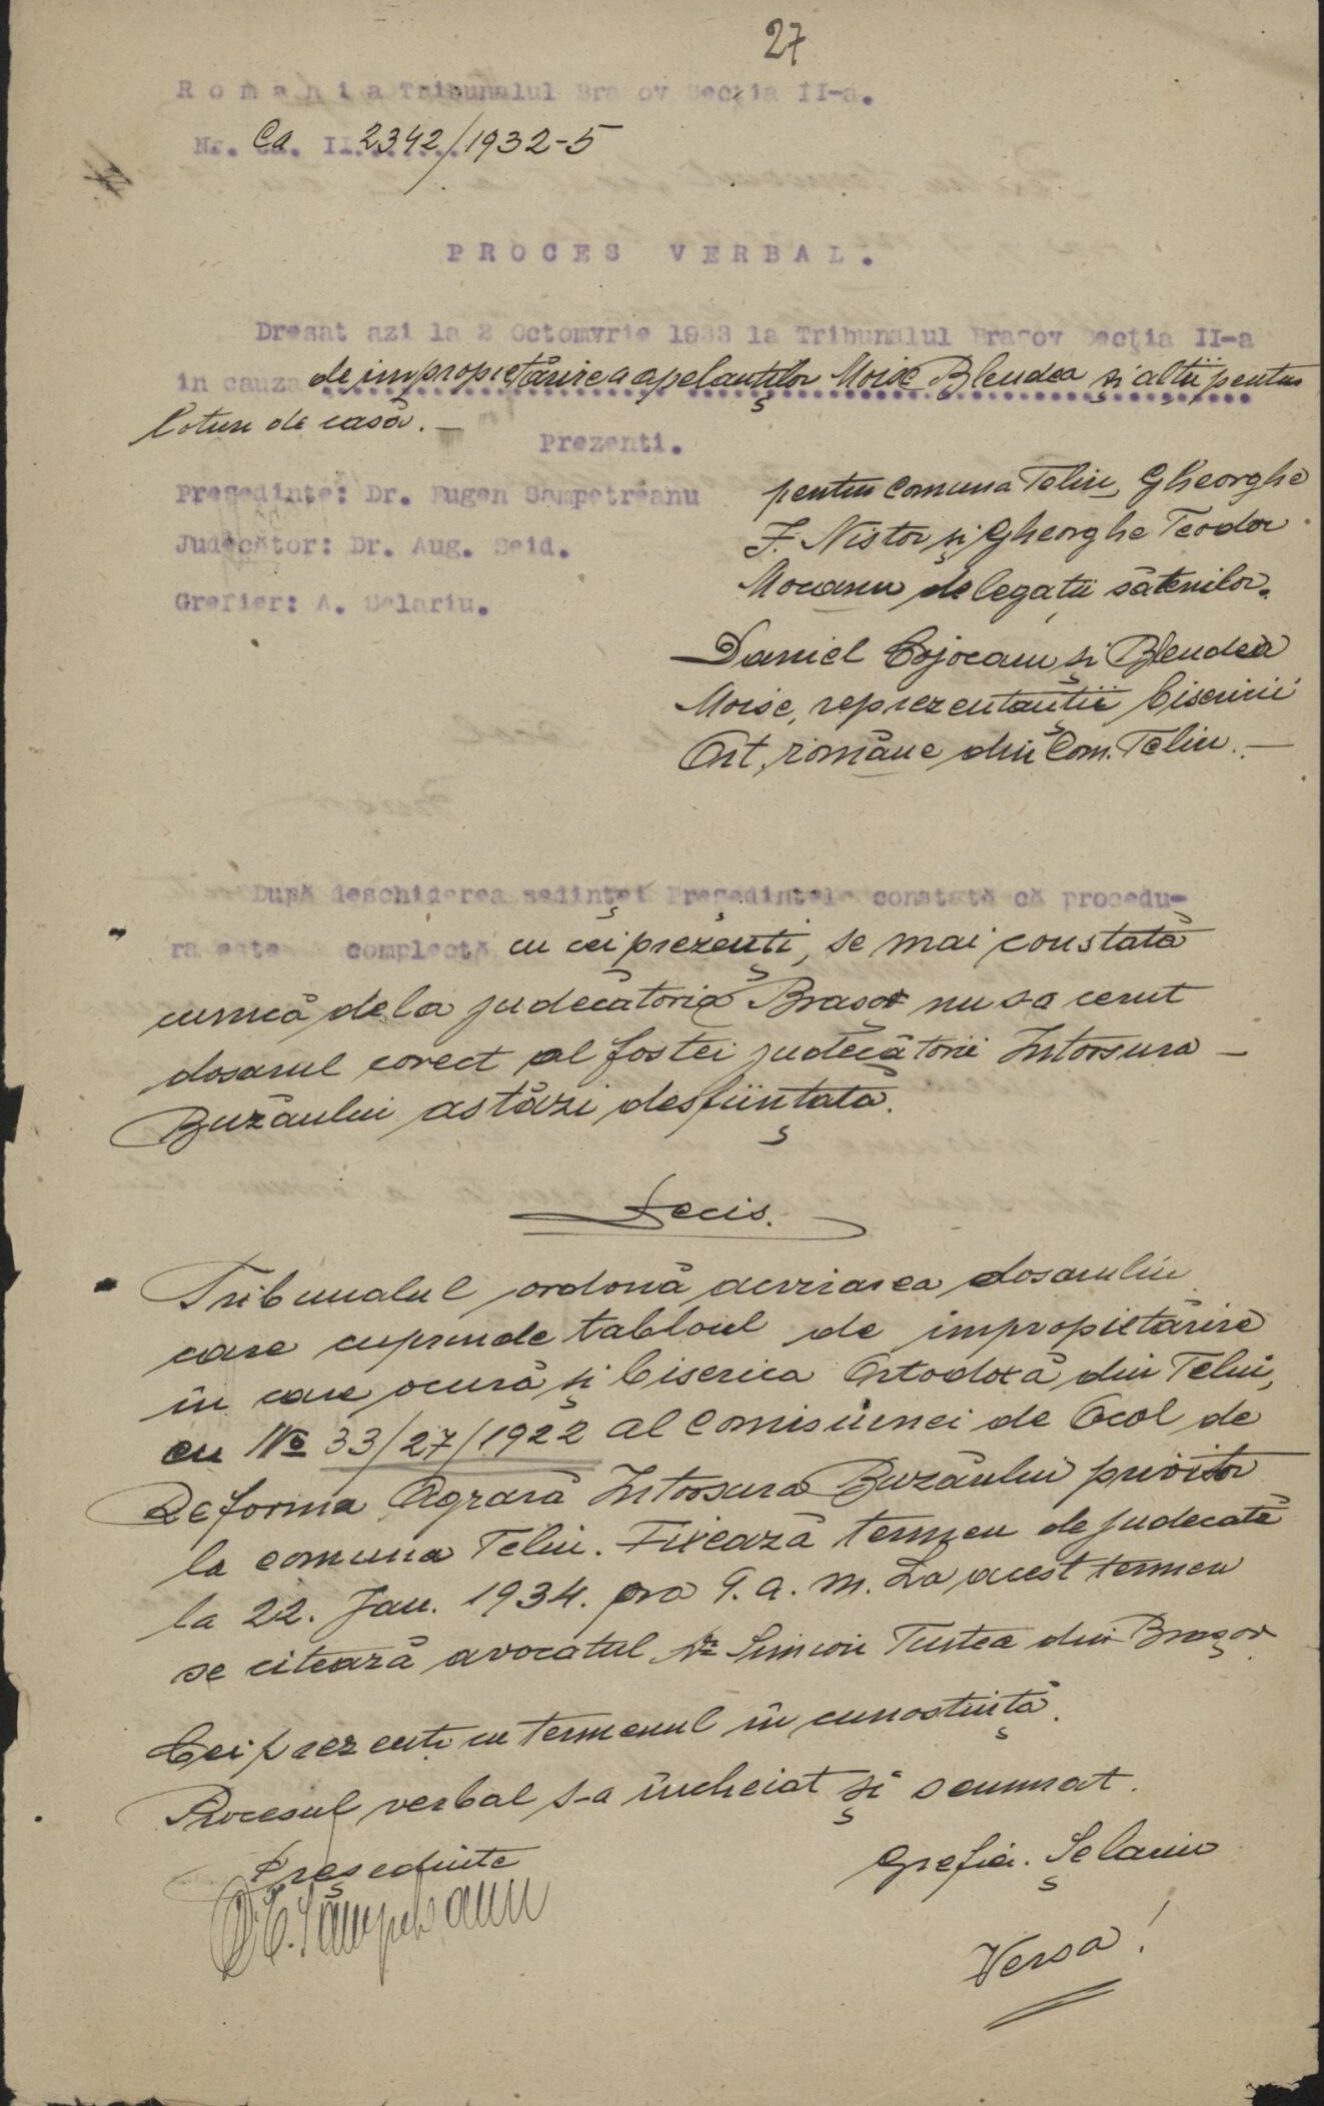 27
R o m a n i a Tribunalul Bra ov Secţia II-a.
Nr. Ca. II 2342/1932-5
P R O C E S V E R B A L .
Dresat azi la 2 Octomvrie 1933 la Tribunalul Braşov Secţia II-a
in cauza de impropietărirea apelanţilor Moise Blendea şi alţii pentru
loturi de casă. —
Prezenti.
Preşedinte: Dr. Eugen Sampetreanu
Judecător: Dr. Aug. Seid.
Grefier: A. Selariu.
pentru comuna Teliu, Gheorghe
I. Nistor şi Gheorghe Teodor
Mocanu delegaţii sătenilor.
Daniel Cojocaru şi Blendea
Moise, reprezentanţii bisericii
Ort. române din Com. Teliu. —
După deschiderea sedinţei Preşedintele constată că procedu-
ra este complectă cu cei prezenţi, se mai constată
cumcă dela judecătoria Braşov nu s-a cerut
dosarul corect al fostei judecătorii Intorsura –
Buzăului astăzi desfiinţată.
Decis.
Tribunalul ordonă acvirarea dosarului
care cuprinde tabloul de impropietărire
în care ocură şi biserica Ortodoxă din Teliu,
cu No 33/27/1922 al Comisiunei de Ocol de
Reforma Agrară Intorsura Buzăului privitor
la comuna Teliu. Fixează termen de judecată
la 22. Jan. 1934. ora 9. a. m. La acest termen
se citează avocatul Dr Simion Tustea din Braşov
Cei prezenţi cu termenul în cunostinţă.
Procesul verbal s-a încheiat şi semnat.
Preşedinte
Dr E. Sâmpetreanu
Grefier. Şelariu
Versa!